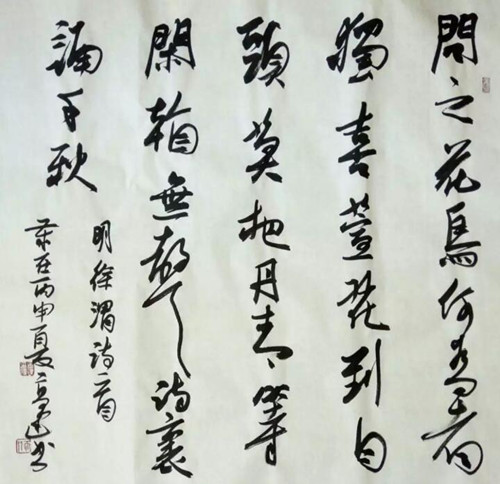 問之花鳥何為者
獨喜萱花到白
頭莫把丹青等
閑看無聲詩裏
誦千秋
明徐渭詩一首
歲在丙申夏書